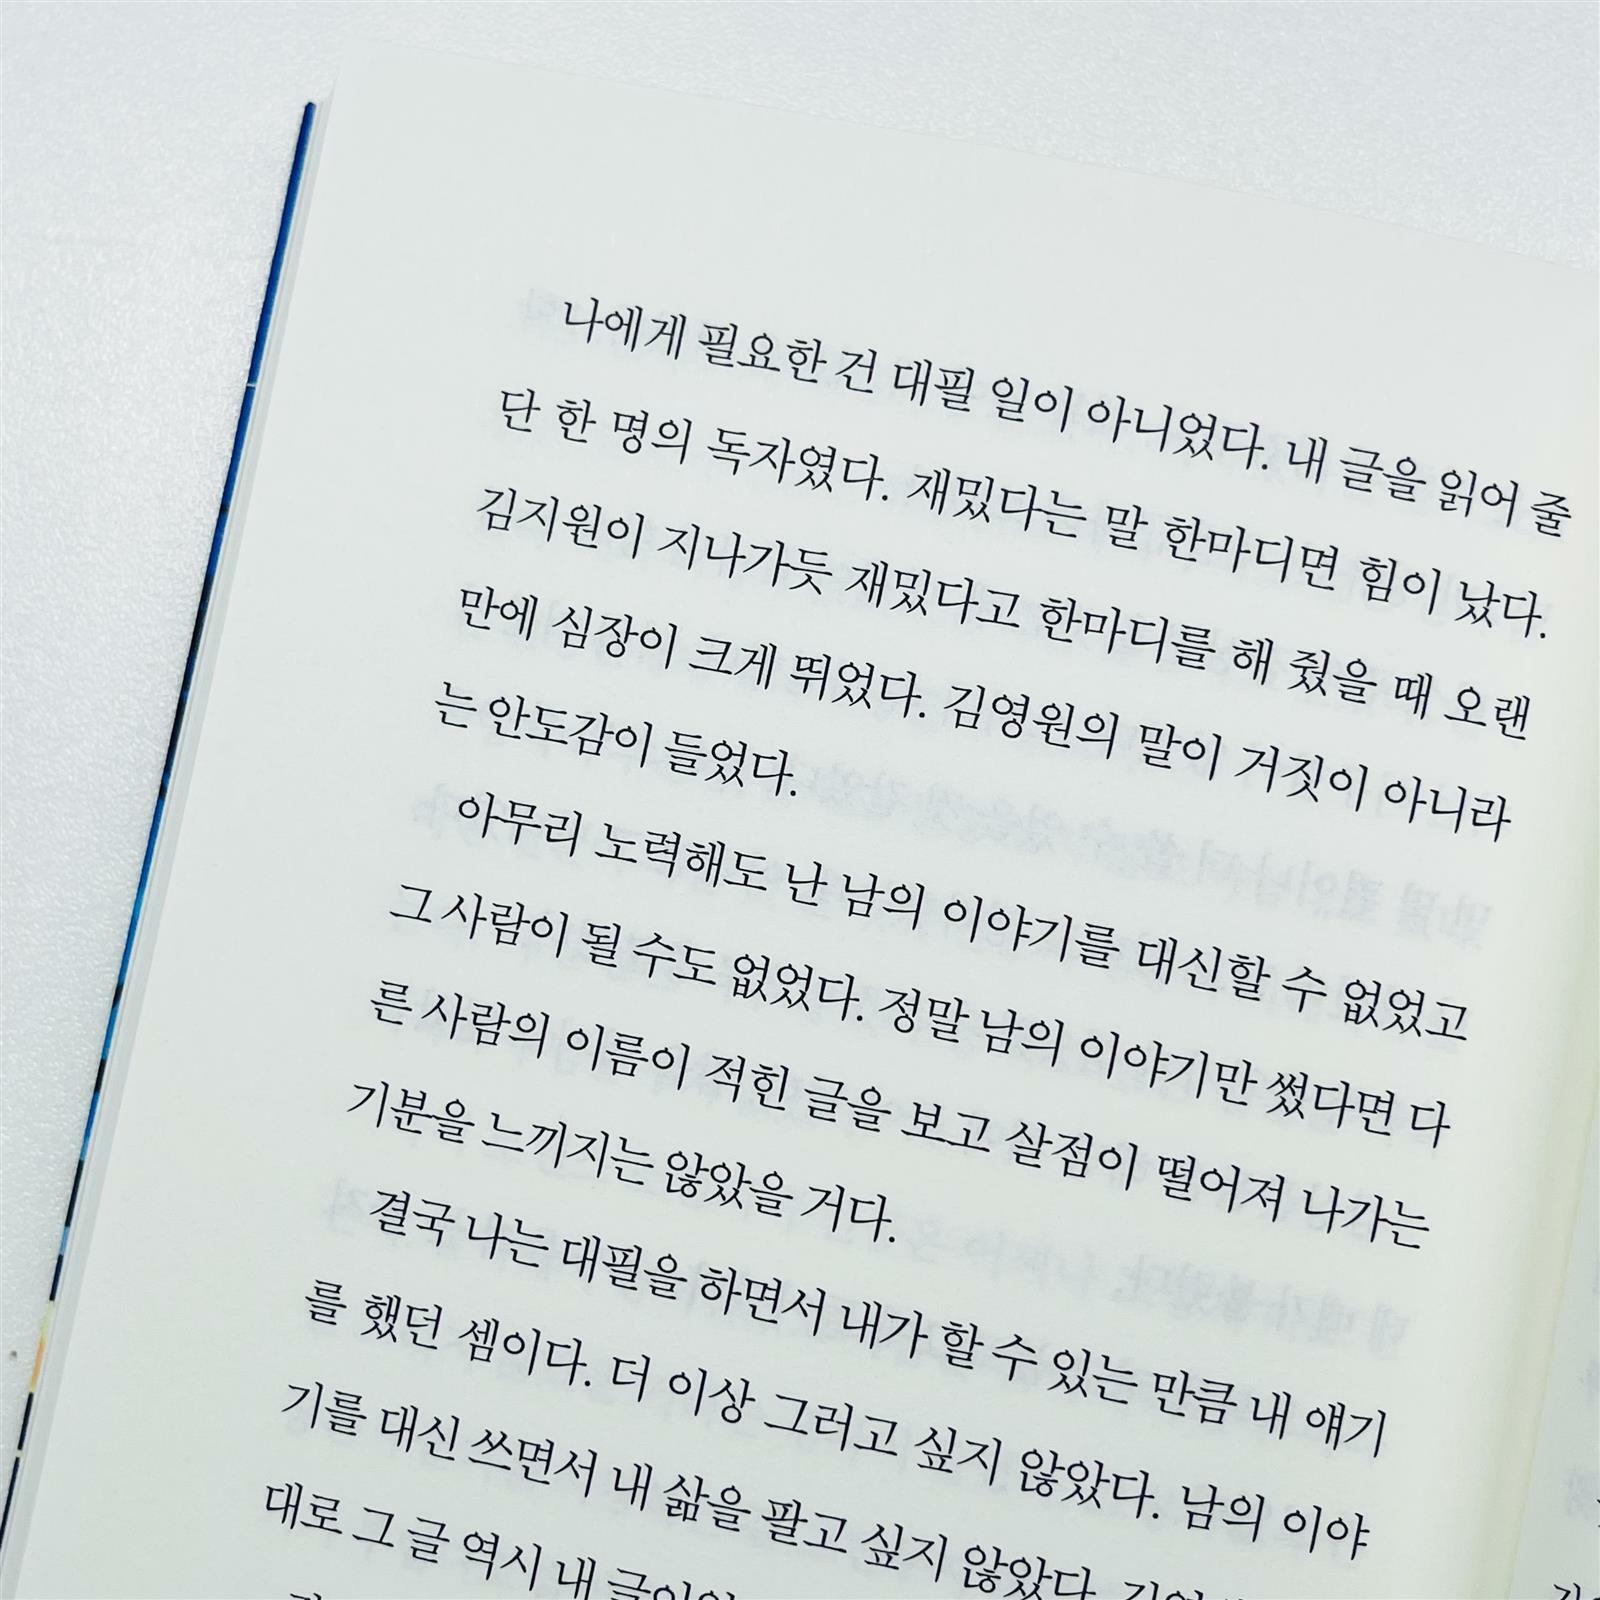 나에게 필요한 건 대필 일이 아니었다. 내 글을 읽어 줄
단 한 명의 독자였다. 재밌다는 말 한마디면 힘이 났다.
김지원이 지나가듯 재밌다고 한마디를 해 줬을 때 오랜
만에 심장이 크게 뛰었다. 김영원의 말이 거짓이 아니라
는 안도감이 들었다.
아무리 노력해도 난 남의 이야기를 대신할 수 없었고
그 사람이 될 수도 없었다. 정말 남의 이야기만 썼다면 다
른 사람의 이름이 적힌 글을 보고 살점이 떨어져 나가는
기분을 느끼지는 않았을 거다.
결국 나는 대필을 하면서 내가 할 수 있는 만큼 내 얘기
를 했던 셈이다. 더 이상 그러고 싶지 않았다. 남의 이야
기를 대신 쓰면서 내 삶을 팔고 싶지 않았다.
대로 그 글 역시 내